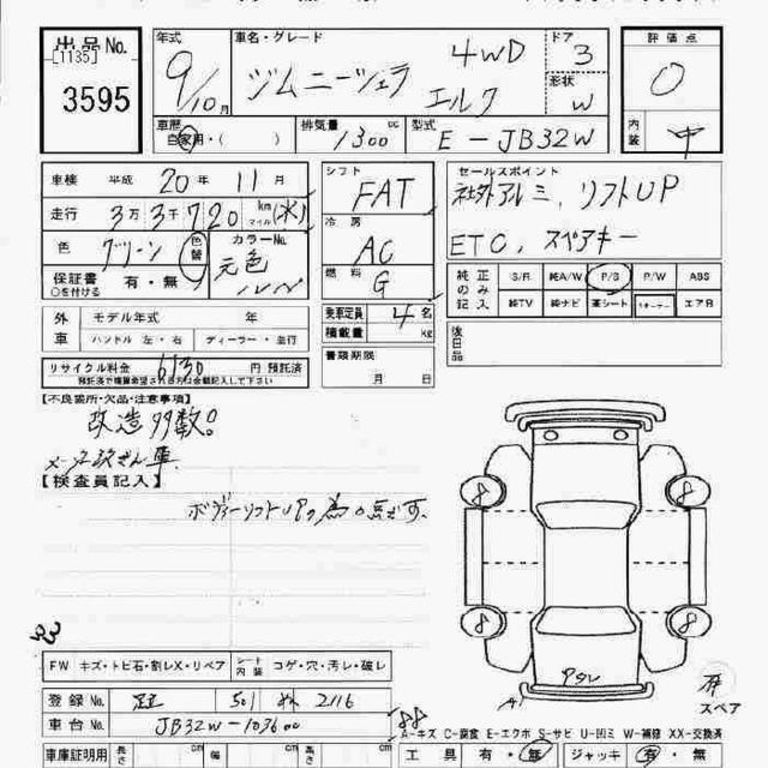 出品No. 年式 車名・グレード ドア 評価点
[1135] 4WD 3
3595 9/10月 ジムニーシェラ エルク 形状 W 0
車歴 自家用・( ) 排気量 1300 cc 型式 E-JB32W 内装 中
車検 平成 20年 11月 シフト FAT セールスポイント
社外アルミ、リフトUP
走行 3万3千720 km マイル 冷房 AC ETC、スペアキー
色 グリーン 色替 カラーNo. 元色 燃料 G
保証書 有・無 ○を付ける
純正のみ記入 S/R 純A/W P/S P/W ABS
純TV 純ナビ 革シート エアB
外車 モデル年式 年 乗車定員 4名
ハンドル 左・右 ディーラー・並行 積載量 kg 後日品
リサイクル料金 6130 円 預託済 書類期限
月 日
【不良箇所・欠品・注意事項】
改造多数。
【検査員記入】
ボディーリフトUPの為0点です。
8 8
8 8
FW キズ・トビ石・割レX・リペア シート内装 コゲ・穴・汚レ・破レ
登録No. 501 ぬ 2116
スペア
車台No. JB32W-103600
A-キズ C-腐食 E-エクボ S-サビ U-凹ミ W-補修 XX-交換済
車庫証明用 長さ cm 幅 cm 高さ cm 工具 有・無 ジャッキ 有・無